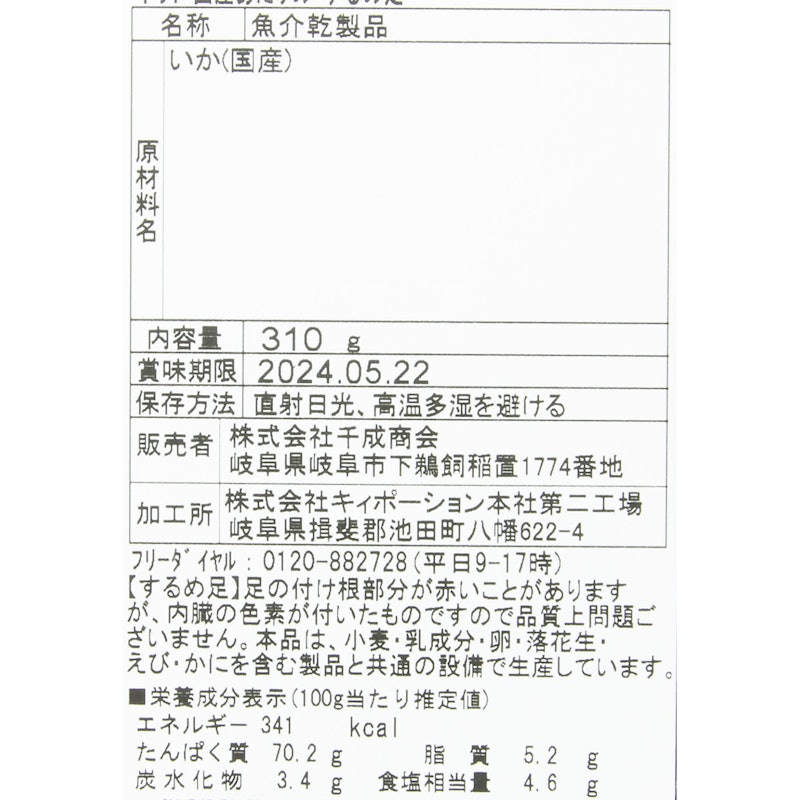 名称 魚介乾製品
原材料名 いか(国産)
内容量 310 g
賞味期限 2024.05.22
保存方法 直射日光、高温多湿を避ける
販売者 株式会社千成商会
岐阜県岐阜市下鵜飼稲置1774番地
加工所 株式会社キィポーション本社第二工場
岐阜県揖斐郡池田町八幡622-4
フリーダイヤル : 0120-882728(平日9-17時)
【するめ足】足の付け根部分が赤いことがあります
が、内臓の色素が付いたものですので品質上問題ご
ざいません。本品は、小麦・乳成分・卵・落花生・
えび・かにを含む製品と共通の設備で生産しています。
■栄養成分表示(100g当たり推定値)
エネルギー 341 kcal
たんぱく質 70.2 g 脂質 5.2 g
炭水化物 3.4 g 食塩相当量 4.6 g